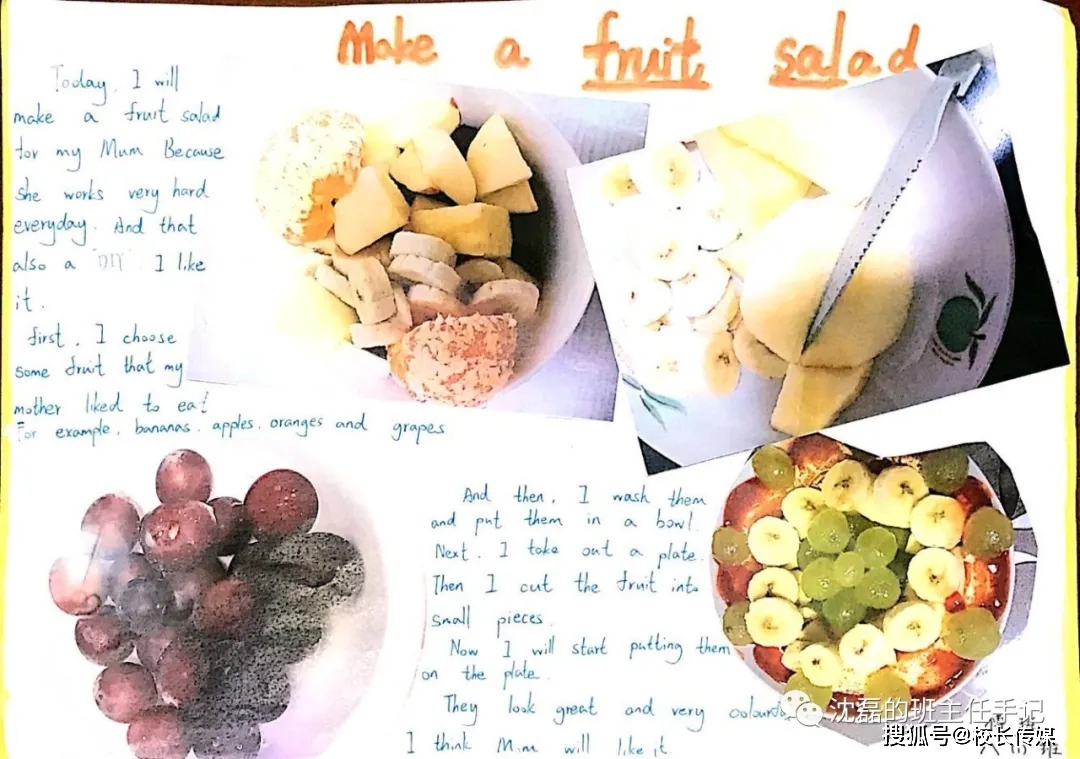 Make a fruit salad
Today, I will
make a fruit salad
for my Mum Because
she works very hard
everyday. And that
also a "DIY". I like
it.
first, I choose
some fruit that my
mother liked to eat
For example, bananas, apples, oranges and grapes
And then, I wash them
and put them in a bowl.
Next, I take out a plate.
Then I cut the fruit into
small pieces.
Now I will start putting them
on the plate.
They look great and very
I think Mum will like it
沈磊的班主任手记
搜狐号@校长传媒